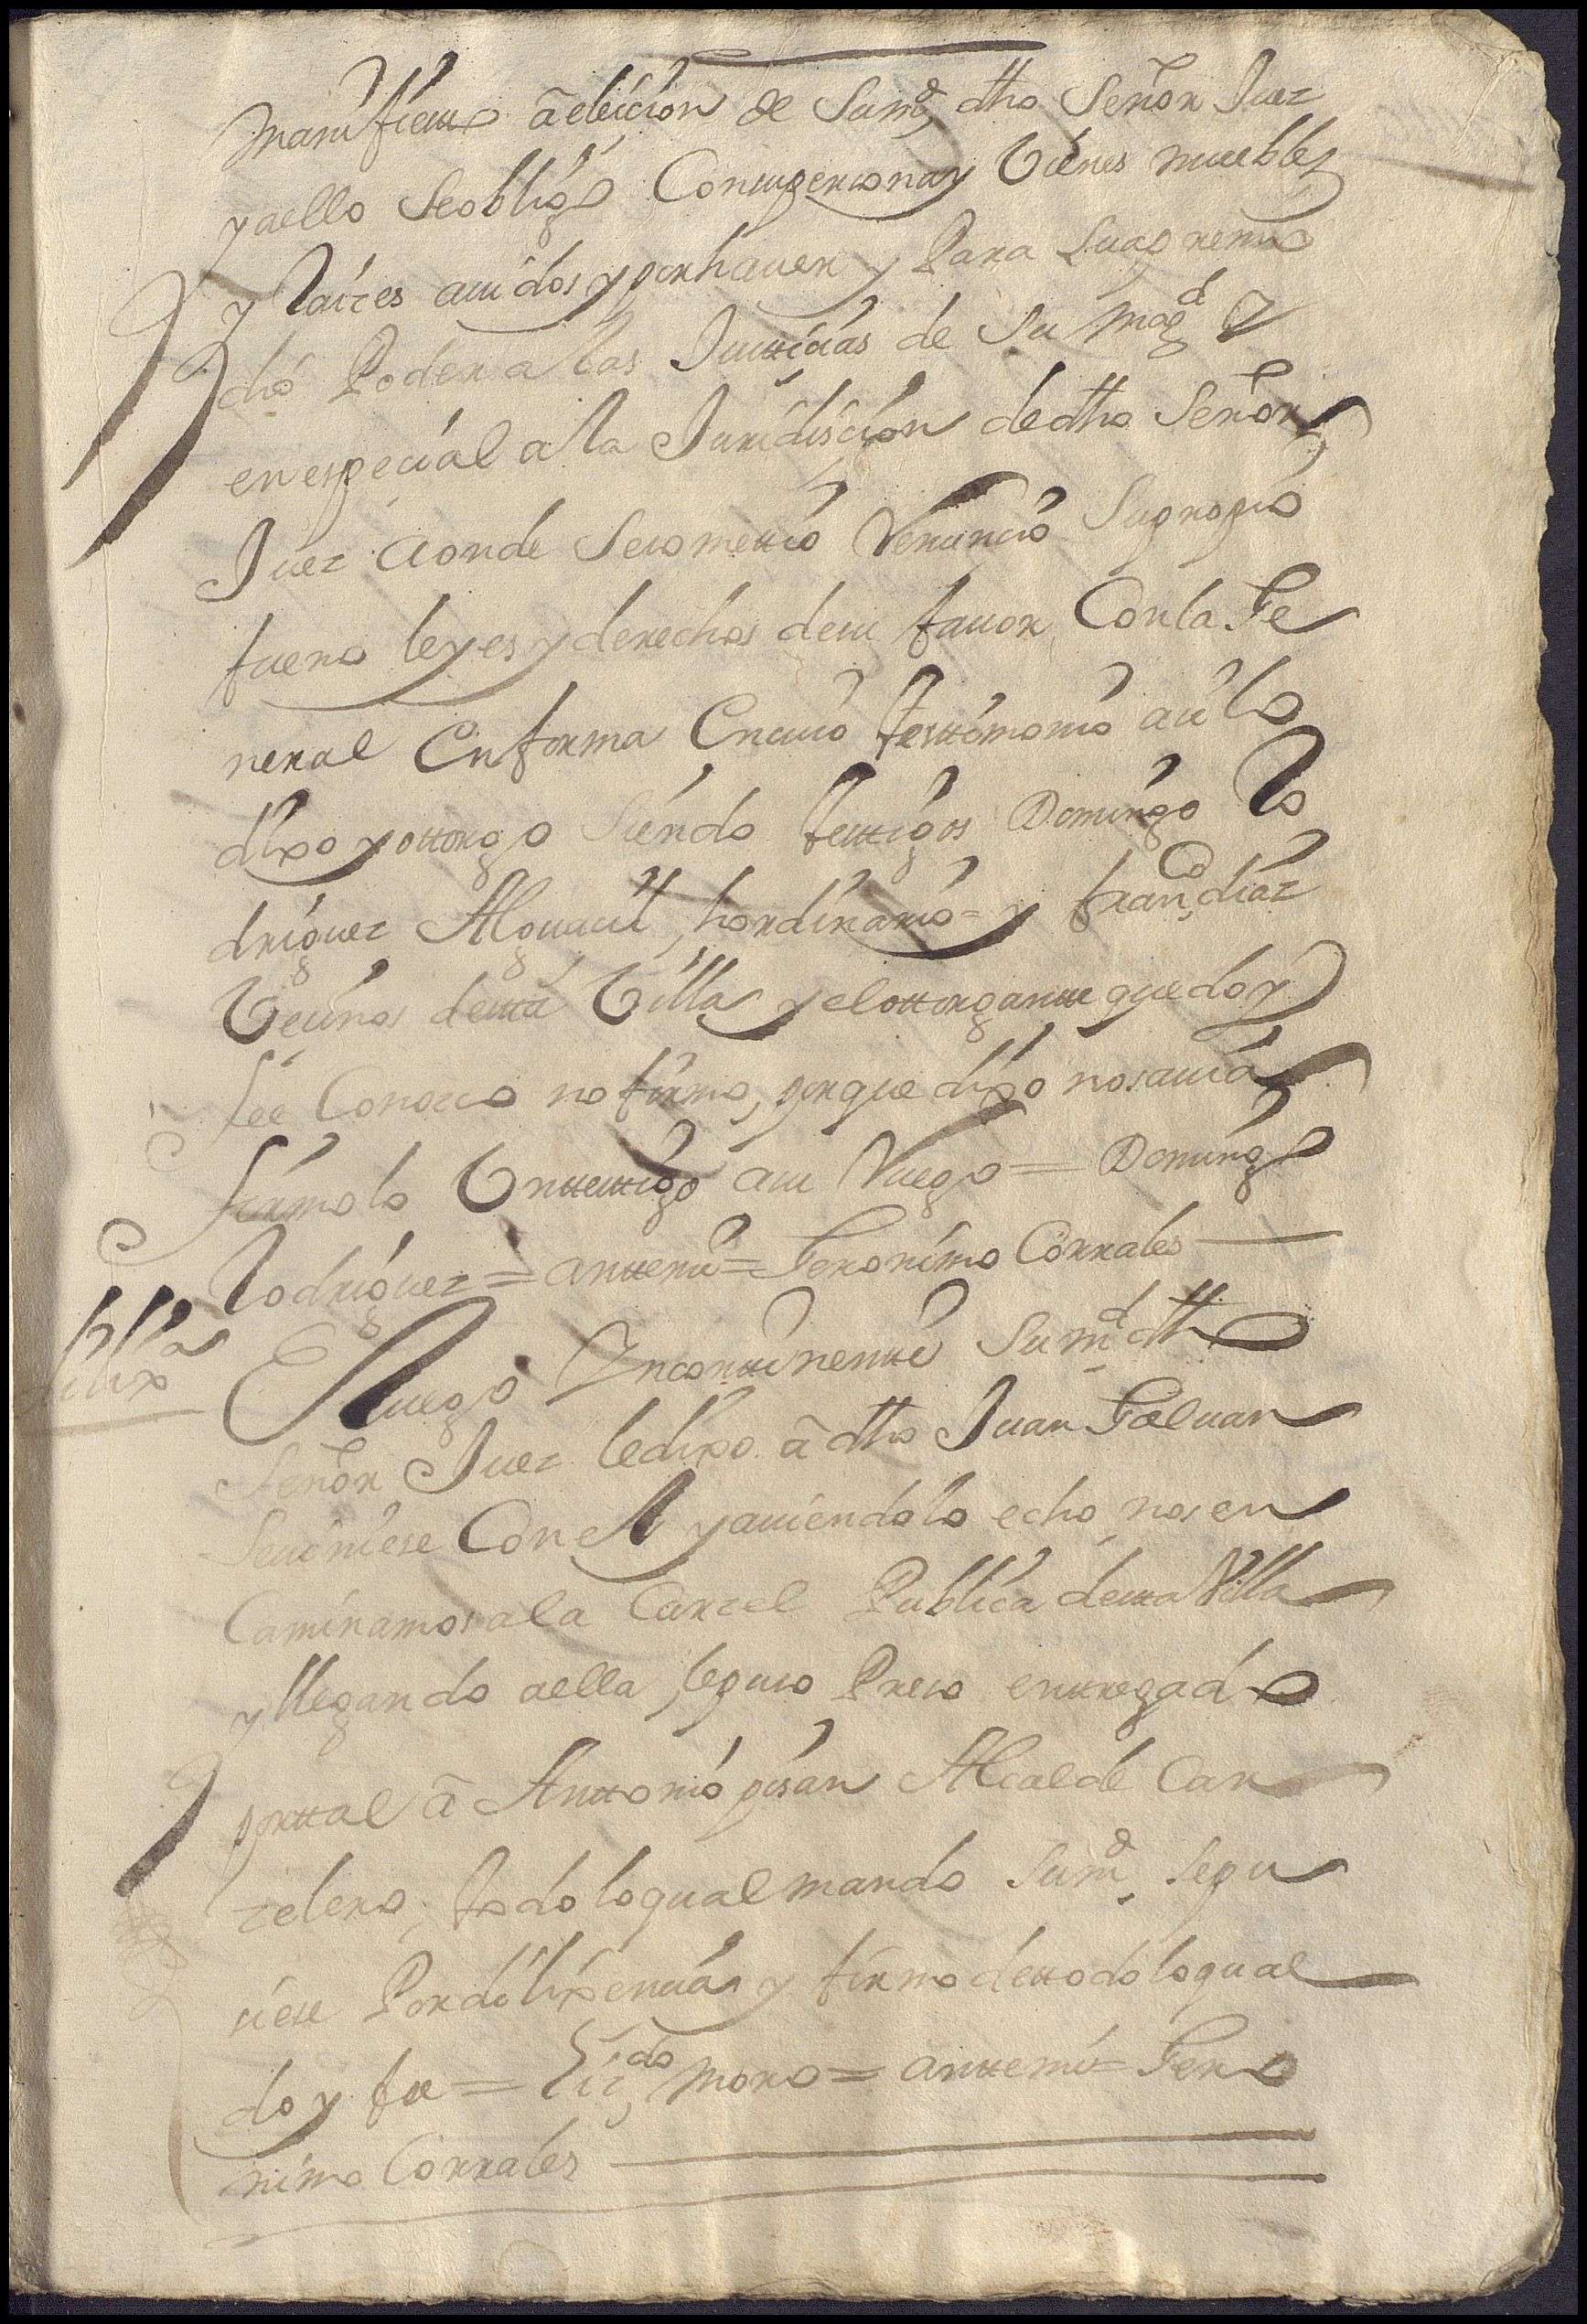 manifieste â eleicion de Sumd, dho Señor Juez
y aello Seobligò Consupersona y Vienes muebles
y Raizes auidos y porhauer y Para Suapremio
diò Poder a las Justicias de Su Magd Y
en especial a la Juridiscion dedho Señor
Juez adonde Sesomettio Renuncio Supropio
fuero leyes y derechos desu fauor Con la Ge
neral En forma En cuio testtimonio asi lo
dijo y ottorgo Siendo testtigos Domingo Ro
driguez Alguacil hordinario = y franco, diaz
Vecinos destta Villa y el ottorgantte que doy
fee Conozco no firmo, porque dijo nosauia
firmolo Vntesttigo asu Ruego = Domingo
Rodriguez = anttemi = Geronimo Corrales
E luego Yncontinentti Sumd dho
Señor Juez ledijo â dho Juan Galuan
Seuiniese Con el y auiendolo echo nos en
Caminamos a la Carzel Publica destta Villa
y llegando aella, sepuso Preso entregado
porttal â Anttonio pisan Alcalde Car
zelero, todo loqual mando Sumd Sepu
siese Pordilijencia y firmo dettodo loqual
doy fee = Lizdo, Moro = anttemi = Gero
nimo Corrales